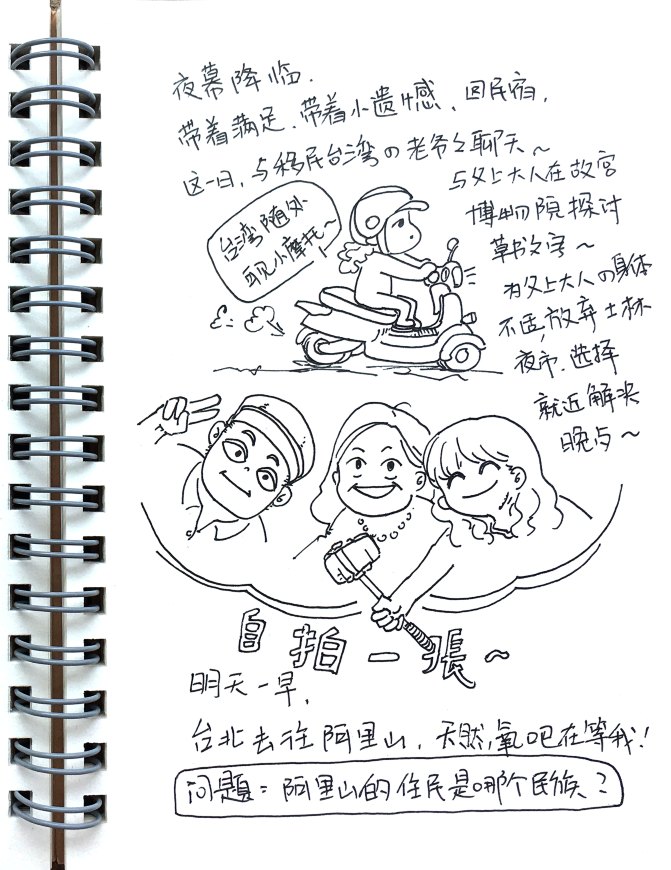 夜幕降临.
带着满足、带着小遗憾、回民宿,
这一日,与移民台湾の老爷爷聊天~
台湾随处
可见小摩托~
与父上大人在故宫
博物院探讨
草书文字~
为父上大人の身体
不适,放弃士林
夜市、选择
就近解决
晚点~
自拍一張~
明天一早,
台北去往阿里山,天然氧吧在等我!
问题:阿里山的住民是哪个民族?